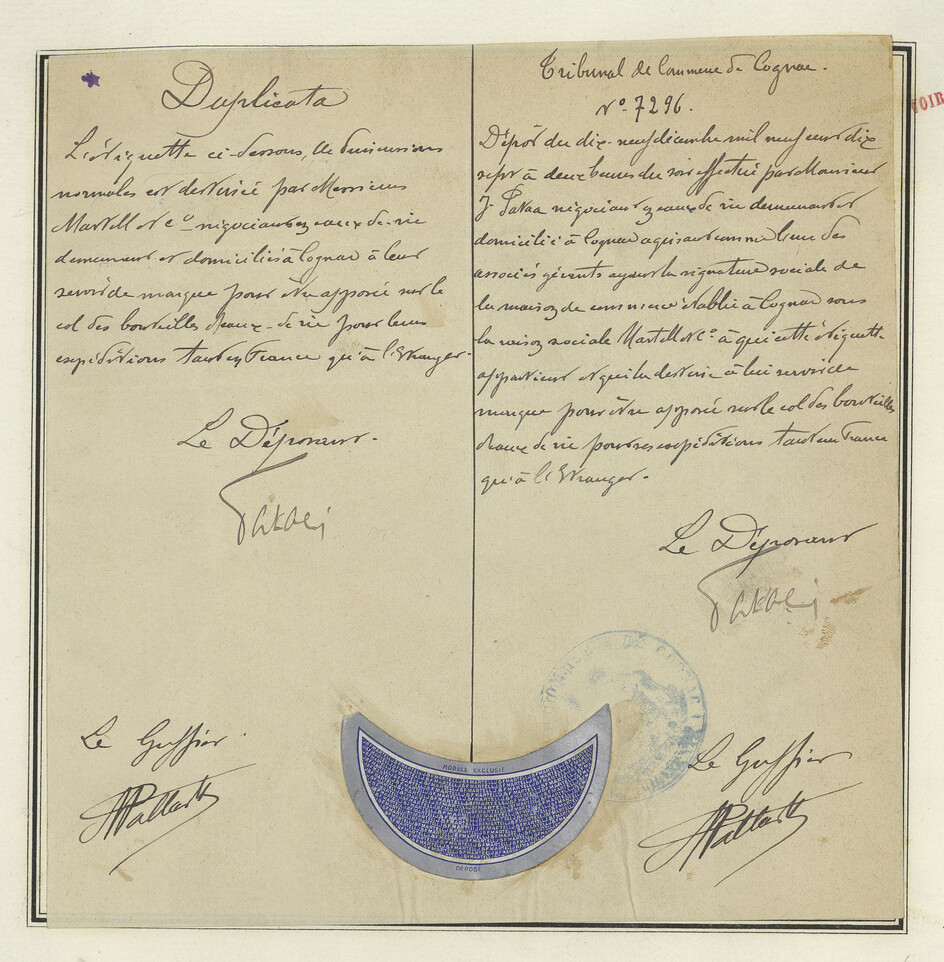 Duplicata
L'étiquette ci-dessous, de dimensions
normales est destinée par Messieurs
Martell et Cº négociants en eaux-de-vie
demeurant et domiciliés à Cognac à leur
servir de marque pour être apposée sur le
col des bouteilles d'eaux-de-vie pour leurs
expéditions tant en France qu'à l'Etranger.
Le Déposant.
Le Greffier.
Tribunal de Commerce de Cognac.
Nº 7296.
Dépôt du dix-neuf décembre mil neuf cent dix
sept à deux heures du soir effectué par Monsieur
J. négociant en eaux de vie demeurant et
domicilié à Cognac agissant comme l'un des
associés gérants ayant la signature sociale de
la maison de commerce établie à Cognac sous
la raison sociale Martell et Cº à qui cette étiquette
appartient et qui la destine à lui servir de
marque pour être apposée sur le col des bouteilles
d'eaux de vie pour ses expéditions tant en France
qu'à l'Etranger.
Le Déposant
Le Greffier
MODÈLE EXCLUSIF
DÉPOSÉ